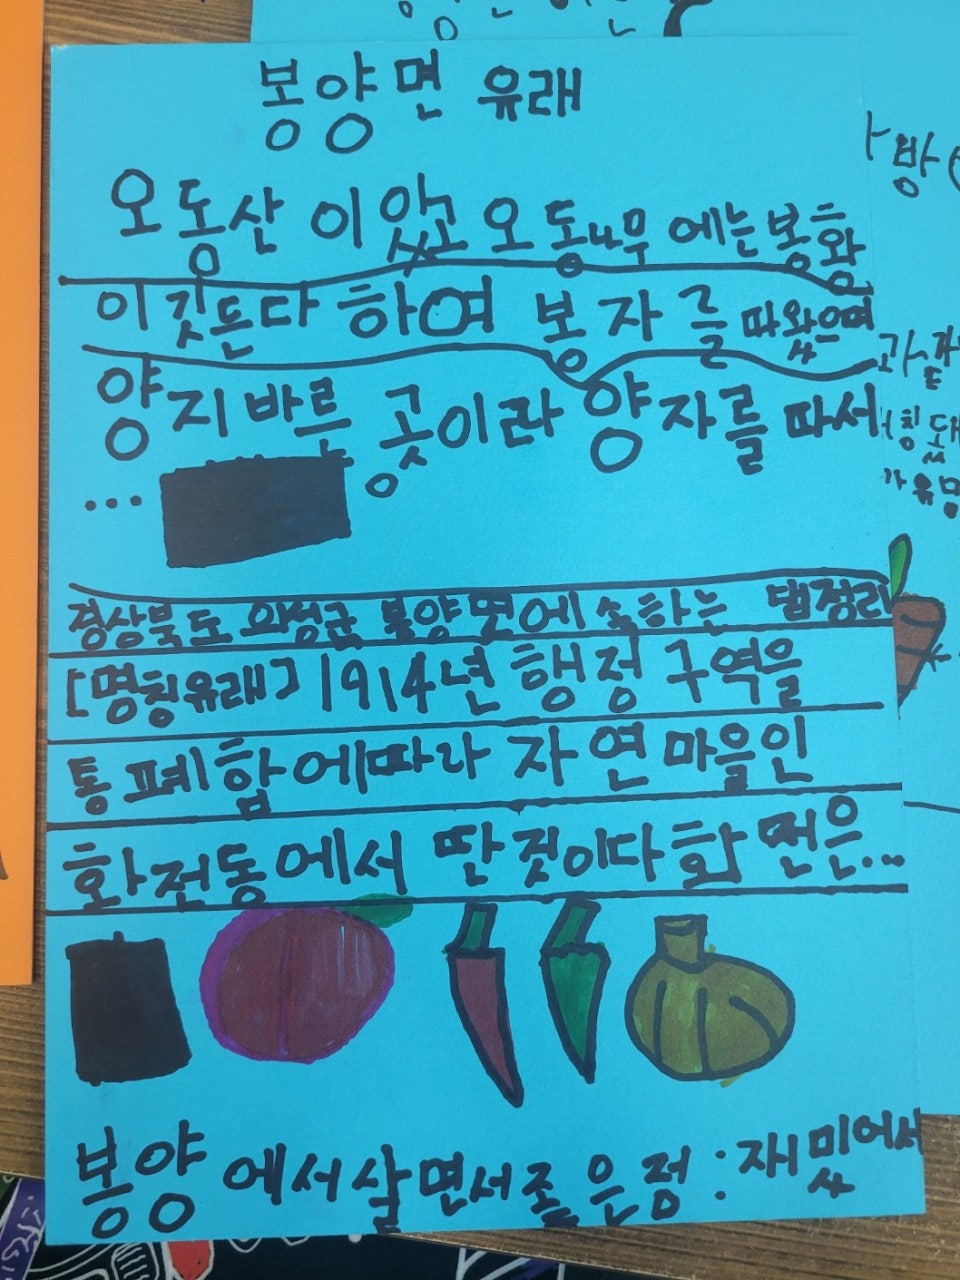 봉양면 유래
오동산 이 있고 오동나무 에는 봉황
이 깃든다 하여 봉 자 를 따왔으며
양지바른 곳이라 양자를 따서
...
경상북도 의성군 봉양면에 속하는 법정리
[명칭유래] 1914년 행정 구역을
통폐합에따라 자연마을인
화전동에서 딴것이다 화전은...
봉양 에서 살면서 좋은점 : 재밌어서